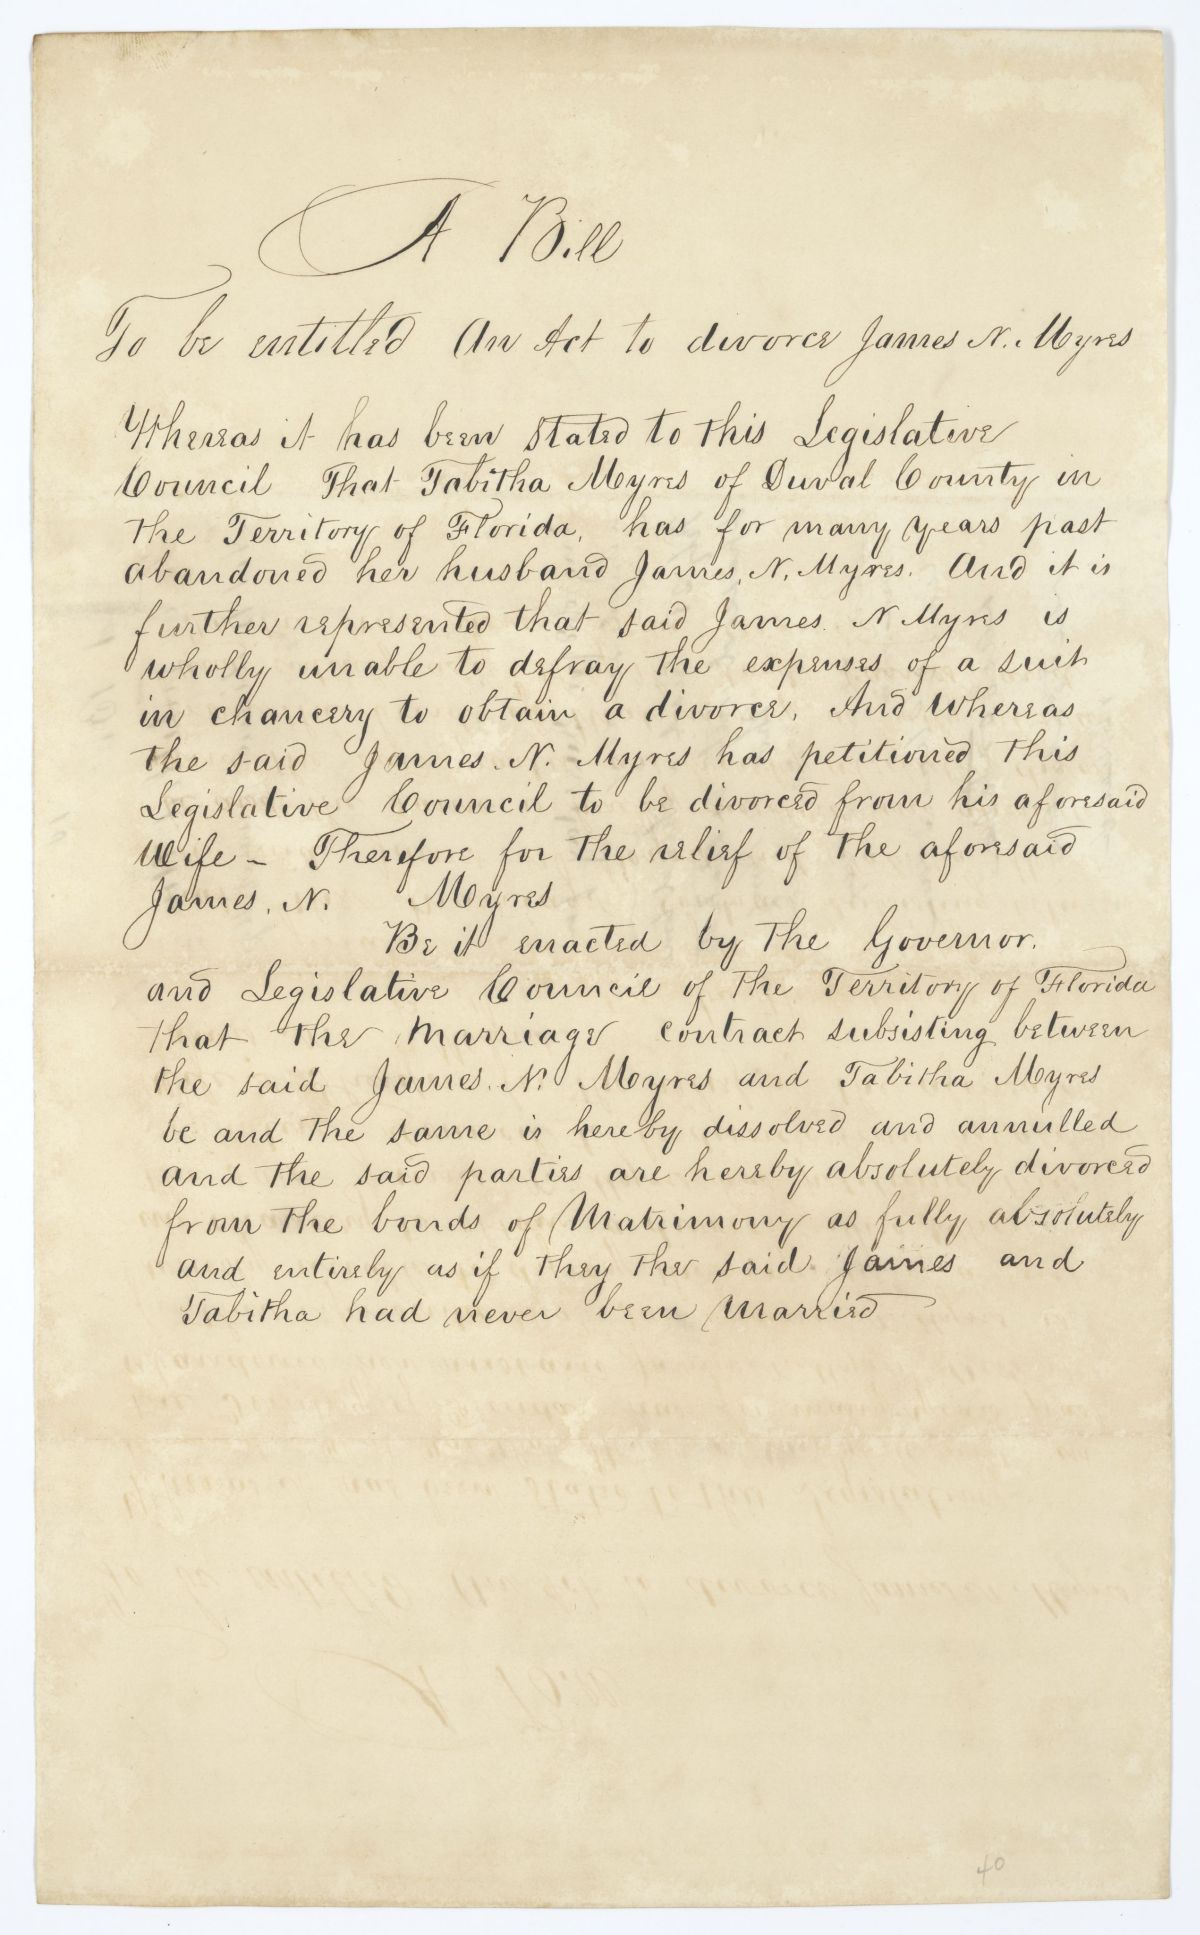 A Bill
To be entitled An Act to divorce James N. Myres
Whereas it has been stated to this Legislative
Council That Tabitha Myres of Duval County in
the Territory of Florida, has for many years past
abandoned her husband James, N. Myres. And it is
further represented that said James. N Myres is
wholly unable to defray the expenses of a suit
in chancery to obtain a divorce, And Whereas
the said James. N. Myres has petitioned this
Legislative Council to be divorced from his aforesaid
Wife - Therefore for the relief of the aforesaid
James, N. Myres
Be it enacted by the Governor.
and Legislative Council of the Territory of Florida
that the Marriage contract subsisting between
the said James. N. Myres and Tabitha Myres
be and the same is hereby dissolved and annulled
and the said parties are hereby absolutely divorced
from the bonds of Matrimony as fully absolutely
and entirely as if they the said James and
Tabitha had never been Married
40